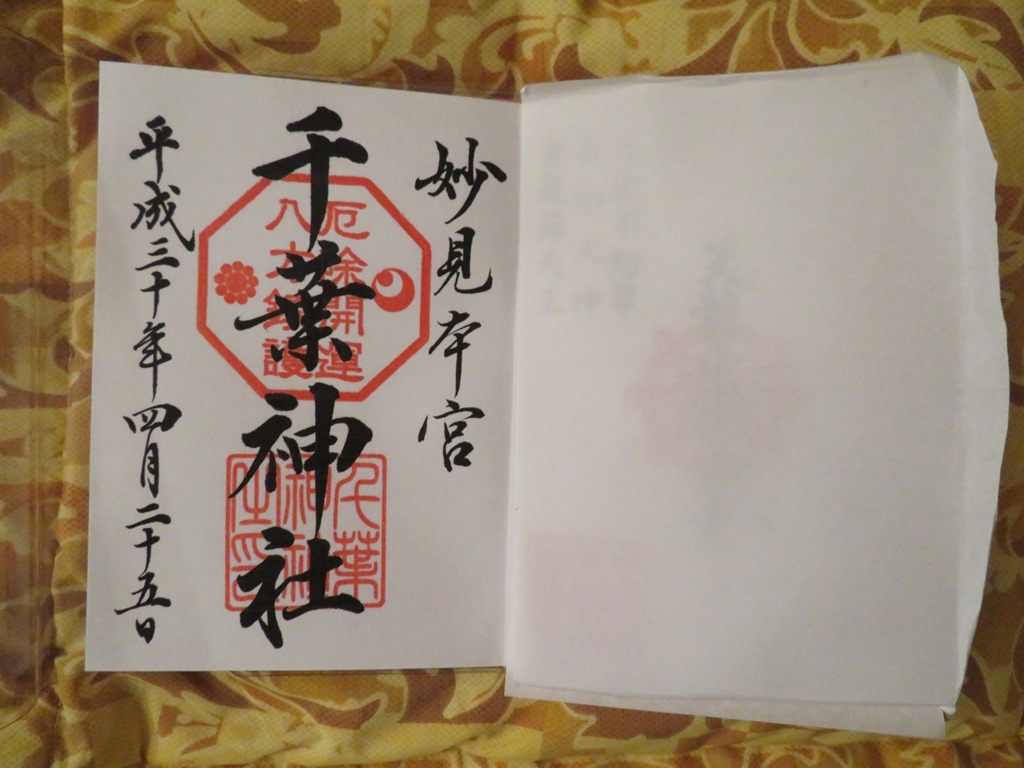 妙見本宮
千葉神社
平成三十年四月二十五日
厄除開運
八方守護
千葉
神社